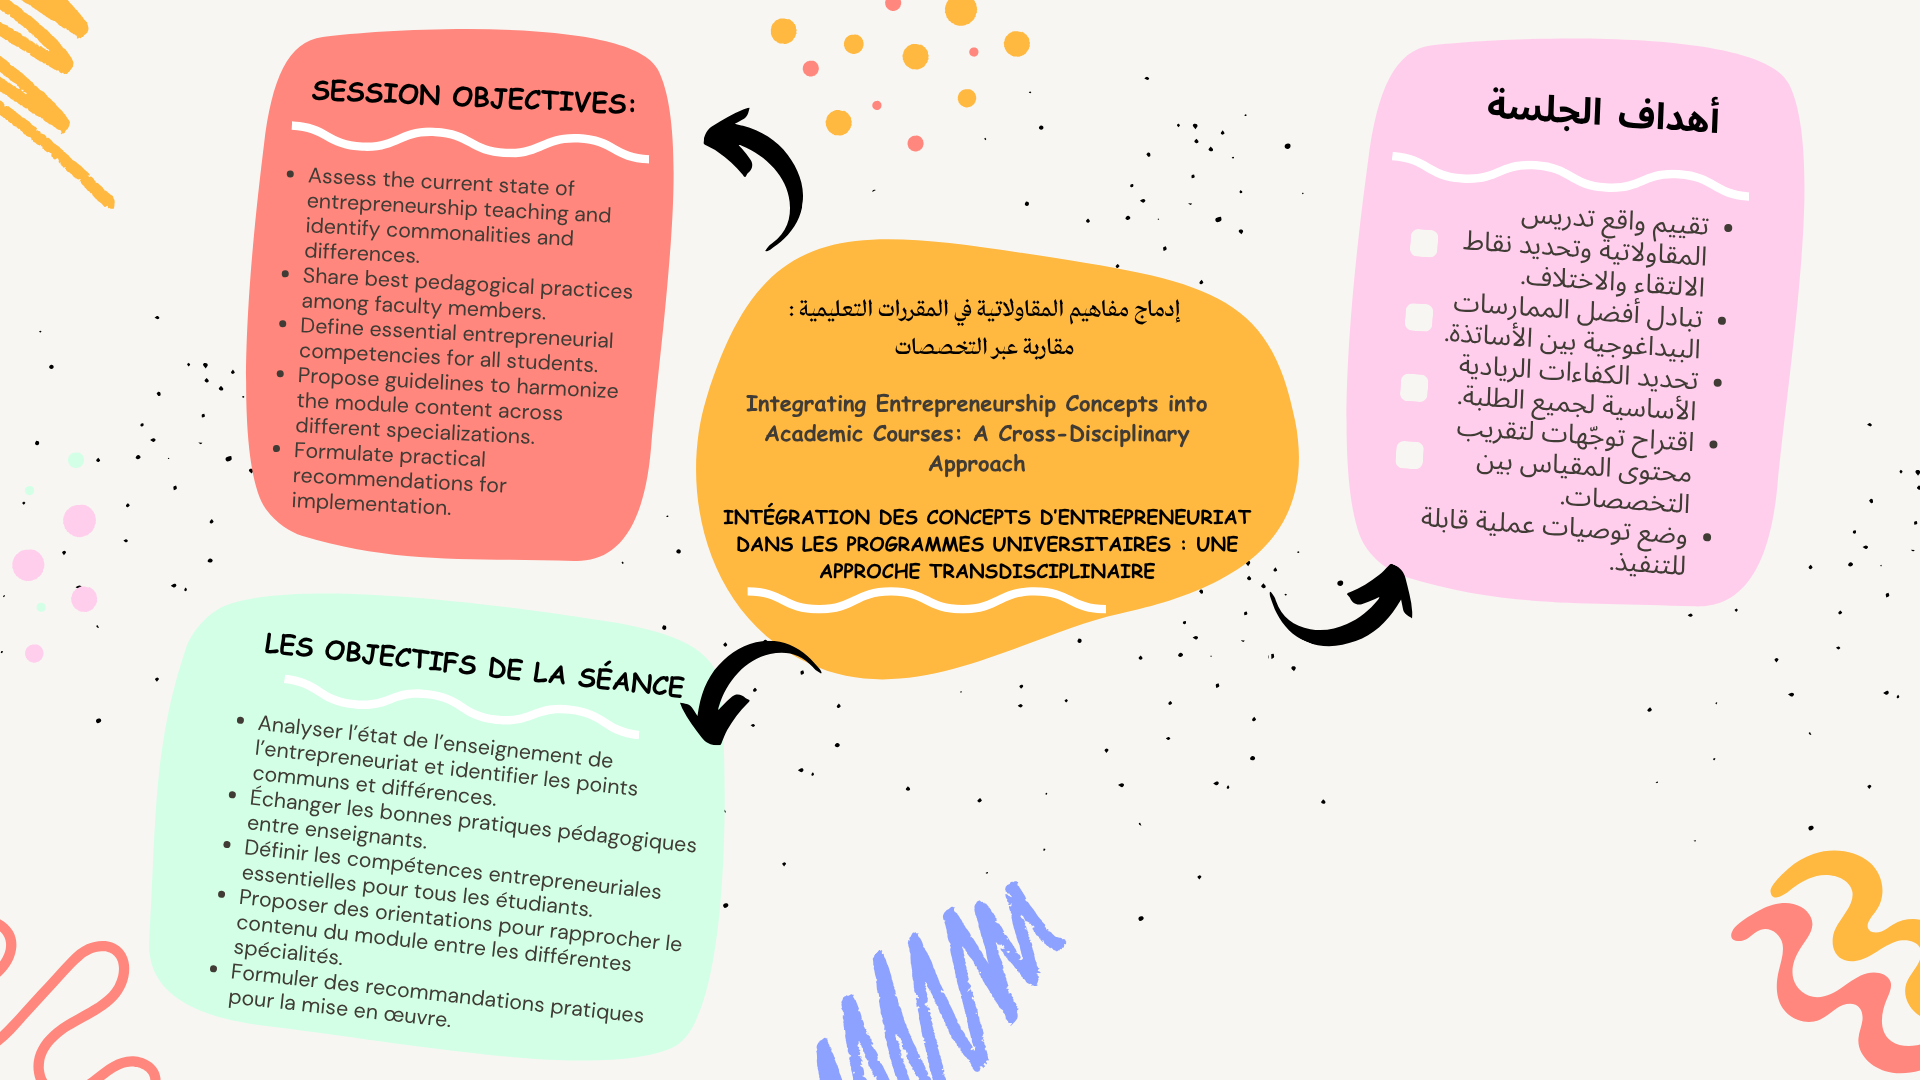 SESSION OBJECTIVES:
• Assess the current state of
entrepreneurship teaching and
identify commonalities and
differences.
• Share best pedagogical practices
among faculty members.
• Define essential entrepreneurial
competencies for all students.
• Propose guidelines to harmonize
the module content across
different specializations.
• Formulate practical
recommendations for
implementation.
إدماج مفاهيم المقاولاتية في المقررات التعليمية :
مقاربة عبر التخصصات
Integrating Entrepreneurship Concepts into
Academic Courses: A Cross-Disciplinary
Approach
INTÉGRATION DES CONCEPTS D'ENTREPRENEURIAT
DANS LES PROGRAMMES UNIVERSITAIRES : UNE
APPROCHE TRANSDISCIPLINAIRE
أهداف الجلسة
• تقييم واقع تدريس
المقاولاتية وتحديد نقاط
الالتقاء والاختلاف.
• تبادل أفضل الممارسات
البيداغوجية بين الأساتذة.
• تحديد الكفاءات الريادية
الأساسية لجميع الطلبة.
• اقتراح توجّهات لتقريب
محتوى المقياس بين
التخصصات.
• وضع توصيات عملية قابلة
للتنفيذ.
LES OBJECTIFS DE LA SÉANCE
• Analyser l'état de l'enseignement de
l'entrepreneuriat et identifier les points
communs et différences.
• Échanger les bonnes pratiques pédagogiques
entre enseignants.
• Définir les compétences entrepreneuriales
essentielles pour tous les étudiants.
• Proposer des orientations pour rapprocher le
contenu du module entre les différentes
spécialités.
• Formuler des recommandations pratiques
pour la mise en œuvre.